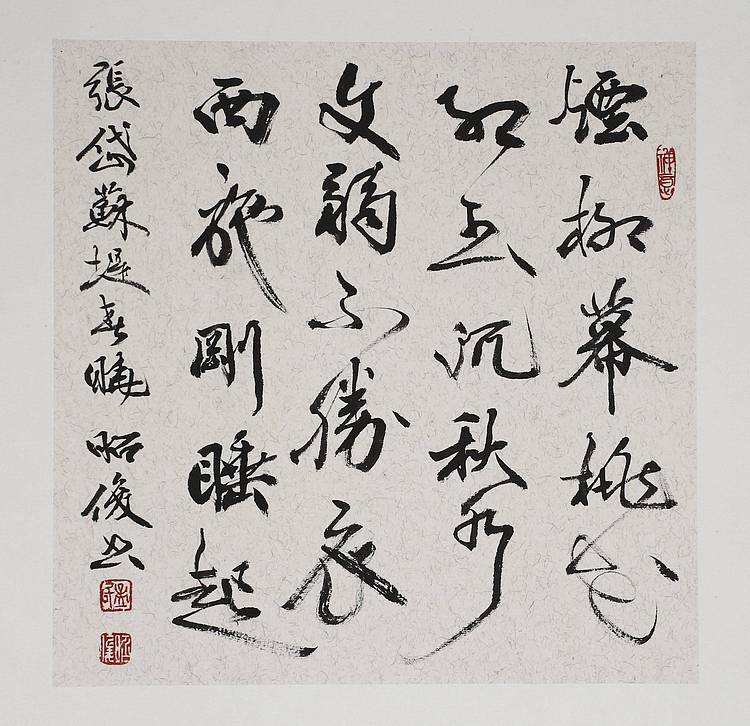 煙柳幕桃花
紅玉沉秋水
文弱不勝衣
西施剛睡起
張岱蘇堤春曉 昭俊书